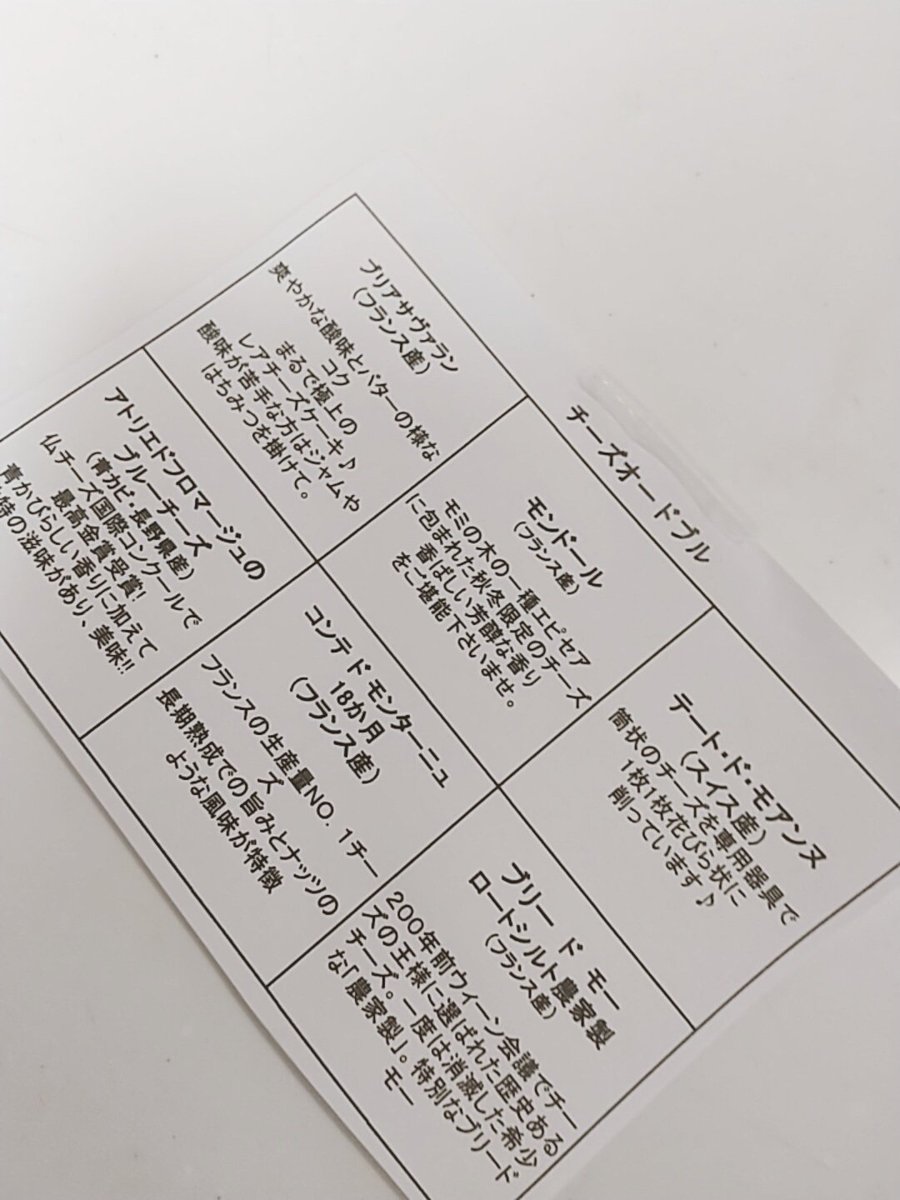 チーズオードブル
ブリアサヴァラン
(フランス産)
爽やかな酸味とバターの様な
コク
まるで極上の
レアチーズケーキ♪
酸味が苦手な方はジャムや
はちみつを掛けて。
モンドール
(フランス産)
モミの木の一種エピセア
に包まれた秋冬限定のチーズ
香ばしい芳醇な香り
をご堪能下さいませ。
テート・ド・モアンヌ
(スイス産)
筒状のチーズを専用器具で
1枚1枚花びら状に
削っています♪
アトリエドフロマージュの
ブルーチーズ
(青カビ・長野県産)
仏チーズ国際コンクールで
最高金賞受賞!
青かびらしい香りに加えて
特の滋味があり、美味!!
コンテ ド モンターニュ
18か月
(フランス産)
フランスの生産量NO.1チー
ズ
長期熟成での旨みとナッツの
ような風味が特徴
ブリー ド モー
ロートシルト農家製
(フランス産)
200年前ウィーン会議でチー
ズの王様に選ばれた歴史ある
チーズ。一度は消滅した希少
な「農家製」。特別なブリード
モー